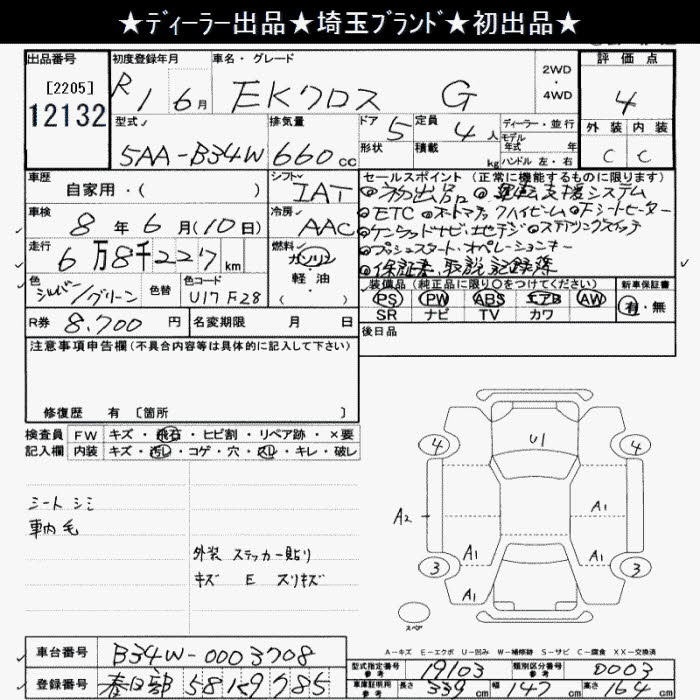 ★ディーラー出品★埼玉ブランド★初出品★
出品番号
[2205]
12132
初度登録年月
R1 6月
車名・グレード
EKクロス G
2WD
・
4WD
評価点
4
外装 内装
C C
型式
5AA-B34W
排気量
660cc
ドア 5
形状
定員 4人
積載 kg
ディーラー・並行
モデル
年式 年
ハンドル 左・右
車歴
自家用・( )
シフト
IAT
車検
8年6月(10日)
冷房
AAC
走行
6万8千227km
燃料
ガソリン
軽油
( )
色
シルバー/グリーン
色替
色コード
U17 F28
R券 8,700円
名変期限 月 日
セールスポイント(正常に機能するものに限ります)
◎初出品 ◎運転支援システム
◎ETC ◎オートマチックハイビーム ◎Fシートヒーター
◎ケンウッドナビ・地デジ ◎ステアリングスイッチ
◎プッシュスタート・オペレーションキー
◎保証書、取説、記録簿
装備品(純正品に限り○をつけてください)
PS PW ABS エアB AW
SR ナビ TV カワ
新車保証書
有・無
後日品
注意事項申告欄(不具合内容等は具体的に記入して下さい)
修復歴 有 〔箇所 〕
検査員
記入欄
FW キズ・飛石・ヒビ割・リペア跡・×要
内装 キズ・汚れ・コゲ・穴・スレ・キレ・破レ
シート シミ
車内 毛
外装 ステッカー貼り
キズ E スリキズ
U1
4 4
A1
A2
A1 A1
3 3
スペア
A-キズ E-エクボ U-凹み W-補修跡 S-サビ C-腐食 XX-交換済
車台番号
B34W-0003708
登録番号
春日部 581
785
型式指定番号
参考
19103
類別区分番号
参考
0003
車庫証明用
参考
長さ 339cm
幅 147cm
高さ 164cm